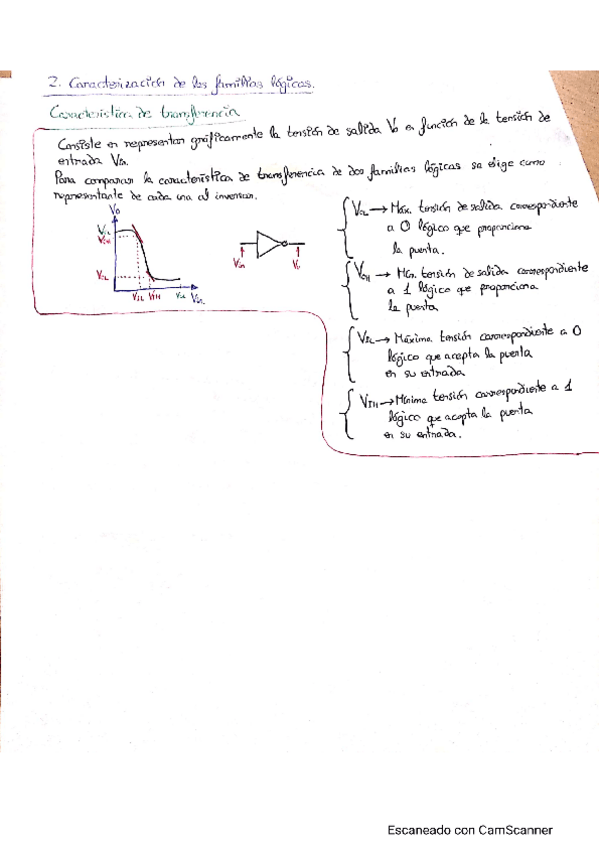 2. Caracterización de las familias lógicas.
Característica de transferencia
Consiste en representar gráficamente la tensión de salida Vo en función de la tensión de
entrada Vin.
Para comparar la característica de transferencia de dos familias lógicas se elige como
representante de cada una al inversor.
Vo
VOH
VOL
VIL VIH Vin
Vin Vo
VOL → Máx. tensión de salida correspondiente
a 0 lógico que proporciona
la puerta.
VOH → Mín. tensión de salida correspondiente
a 1 lógico que proporciona
la puerta
VIL → Máxima tensión correspondiente a 0
lógico que acepta la puerta
en su entrada
VIH → Mínima tensión correspondiente a 1
lógico que acepta la puerta
en su entrada.
Escaneado con CamScanner